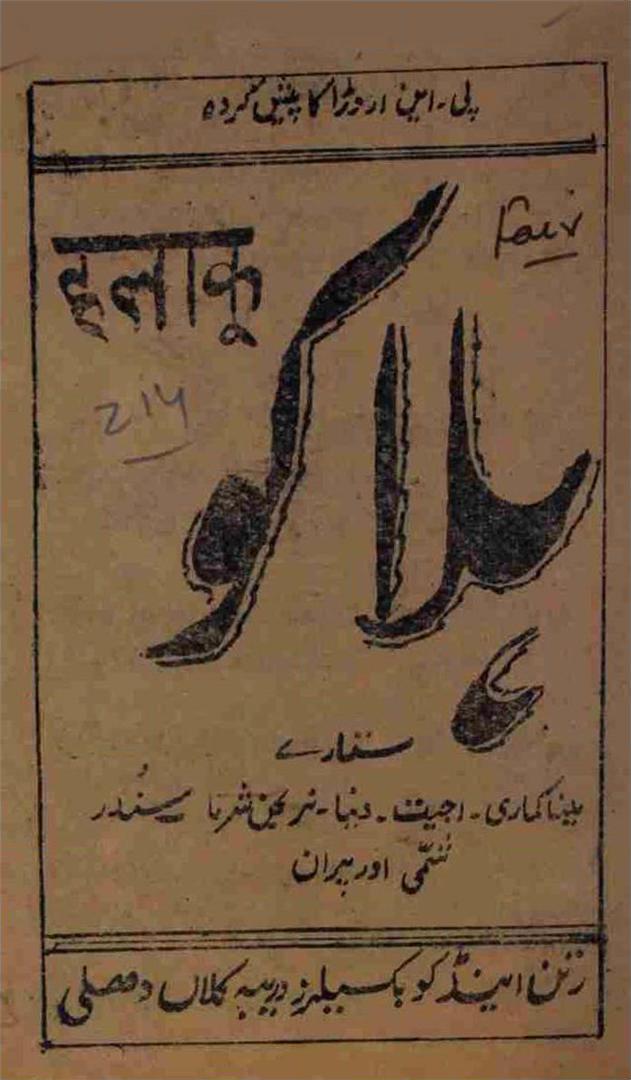 پی۔ این اروڑا کا پیش کردہ
Fair
हलाकू
ہلاکو
214
ستارے
مینا کماری۔ اجیت۔ وینا۔ نرنجن شرما سُندر
شمّی اور پران
رتن اینڈ کو بکسیلرز دریبہ کلاں دھلی